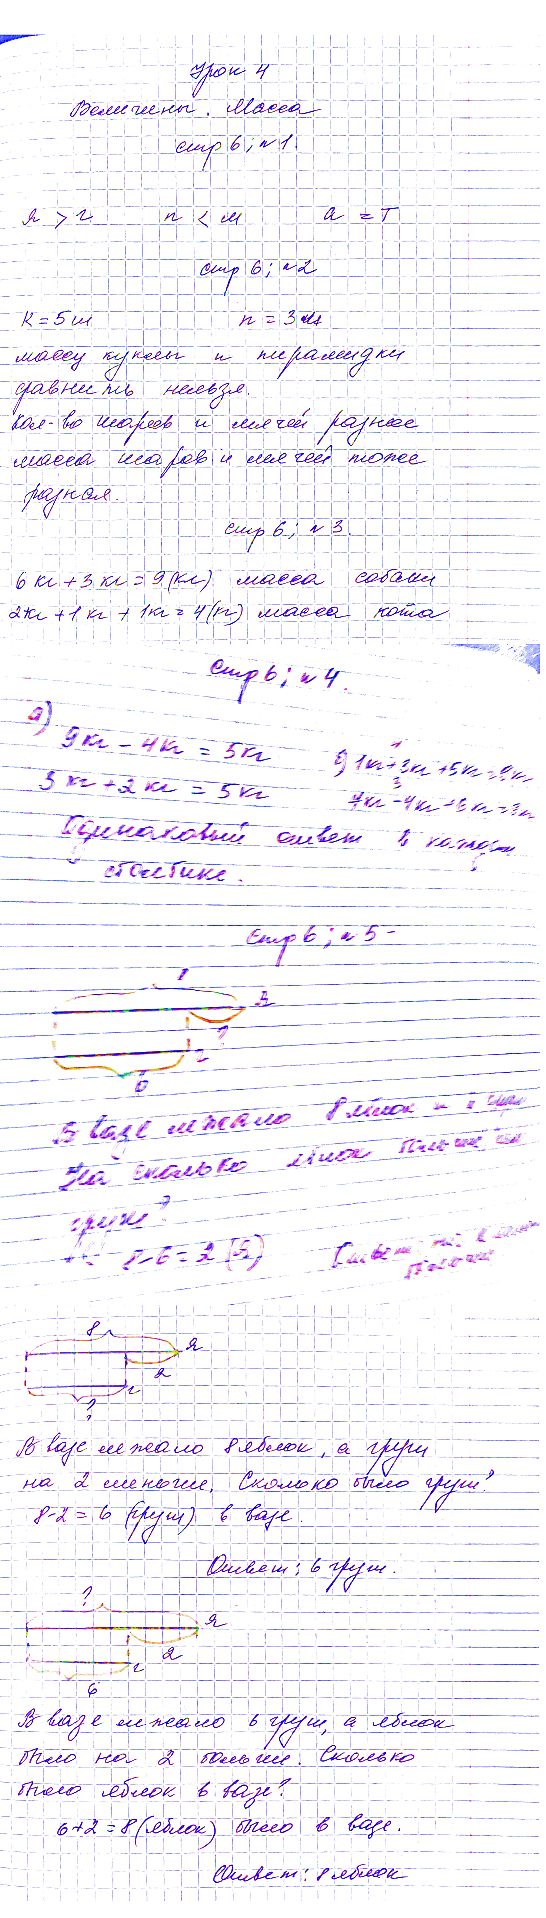 Урок 4
Величины. Масса
стр 6; №1.
я > г п < м а = т
стр 6; №2
к = 5ш п = 3м
массу куклы и пирамидки
сравнить нельзя.
Кол-во шаров и мячей разное
масса шаров и мячей тоже
разная.
стр 6; №3.
6 кг + 3 кг = 9 (кг) масса собаки
2кг + 1кг + 1кг = 4(кг) масса кота
стр 6; №4.
а)
9кг - 4кг = 5кг
3кг + 2кг = 5кг
Одинаковый ответ в каждом
столбике.
стр 6; №5
я
?
г
6
В вазе лежало 8 яблок и
На сколько яблок больше чем
груш?
8-6=2 Ответ: на
больше
8
я
2
г
?
В вазе лежало 8 яблок, а груш
на 2 меньше. Сколько было груш?
8-2=6 (груш) в вазе.
Ответ: 6 груш.
?
я
2
г
6
В вазе лежало 6 груш, а яблок
было на 2 больше. Сколько
было яблок в вазе?
6+2=8 (яблок) было в вазе.
Ответ: 8 яблок